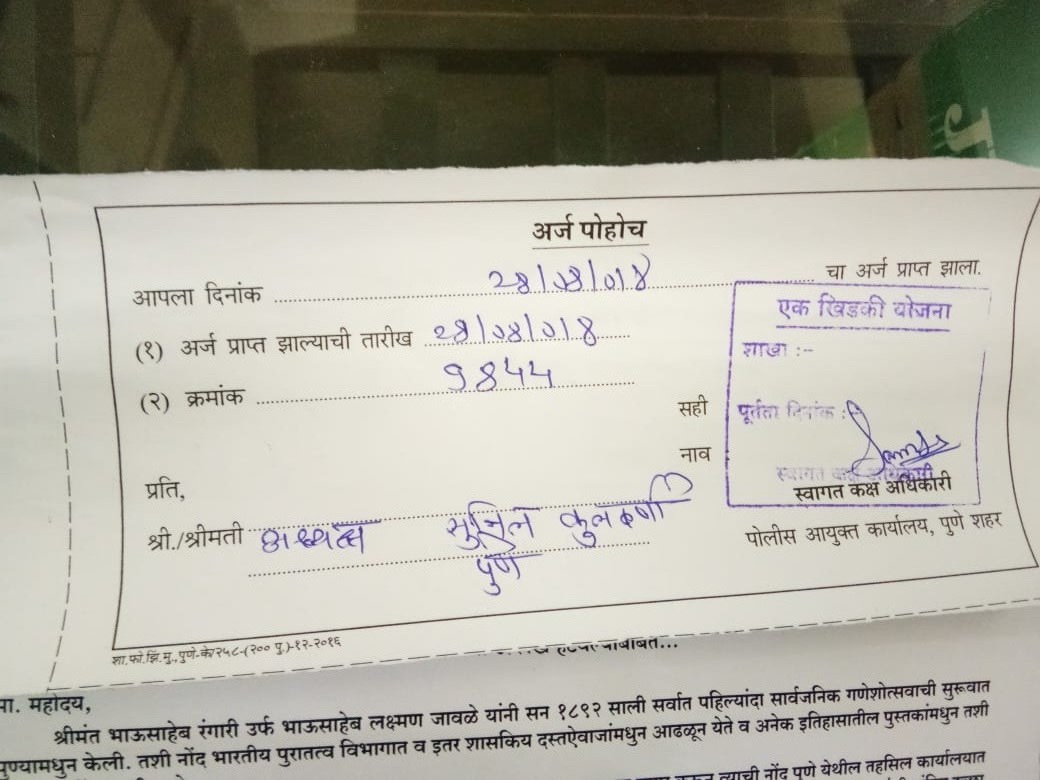 अर्ज पोहोच
आपला दिनांक चा अर्ज प्राप्त झाला.
(१) अर्ज प्राप्त झाल्याची तारीख
(२) क्रमांक ९४५५
एक खिडकी योजना
शाखा :-
पूर्तता दिनांक :-
सही
नाव
स्वागत कक्ष अधिकारी
स्वागत कक्ष अधिकारी
पोलीस आयुक्त कार्यालय, पुणे शहर
प्रति,
श्री./श्रीमती अध्यक्ष सुनिल कुलकर्णी
पुणे
शा.फो.झिं.मु.,पुणे-के/२५८-(२०० पु.)-१२-२०१६
मा. महोदय,
श्रीमंत भाऊसाहेब रंगारी उर्फ भाऊसाहेब लक्ष्मण जावळे यांनी सन १८९२ साली सर्वात पहिल्यांदा सार्वजनिक गणेशोत्सवाची सुरूवात
पुण्यामधुन केली. तशी नोंद भारतीय पुरातत्व विभागात व इतर शासकिय दस्तऐवाजांमधुन आढळून येते व अनेक इतिहासातील पुस्तकांमधुन तशी
त्याची नोंद पुणे येथील तहसिल कार्यालयात